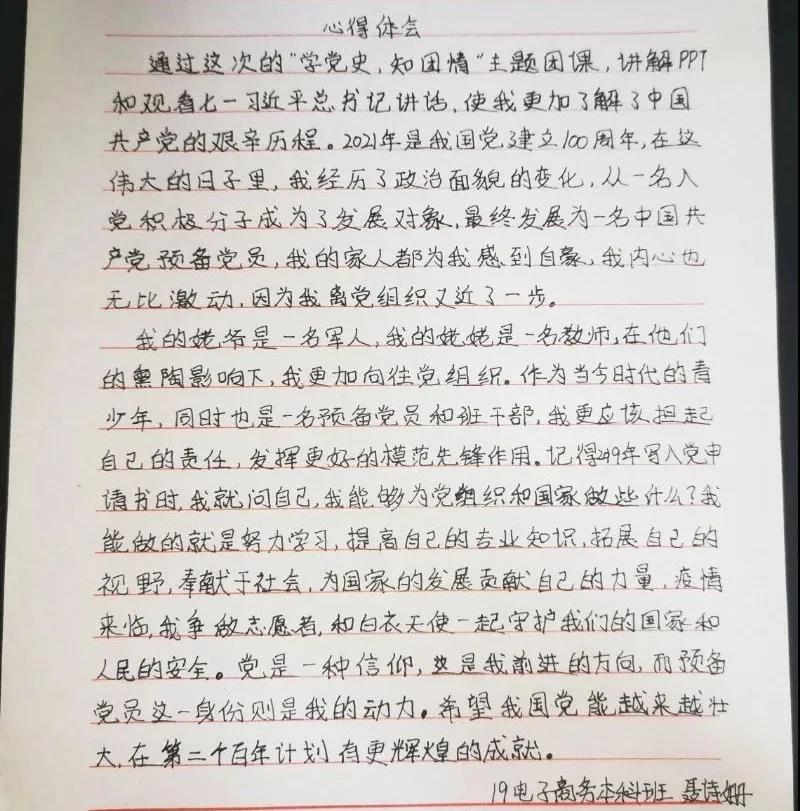 心得体会
通过这次的"学党史,知团情"主题团课,讲解PPT
和观看七一习近平总书记讲话,使我更加了解了中国
共产党的艰辛历程。2021年是我国党建立100周年,在这
伟大的日子里,我经历了政治面貌的变化,从一名入
党积极分子成为了发展对象,最终发展为一名中国共
产党预备党员,我的家人都为我感到自豪,我内心也
无比激动,因为我离党组织又近了一步。
我的姥爷是一名军人,我的姥姥是一名教师,在他们
的熏陶影响下,我更加向往党组织。作为当今时代的青
少年,同时也是一名预备党员和班干部,我更应该担起
自己的责任,发挥更好的模范先锋作用。记得2019年写入党申
请书时,我就问自己,我能够为党组织和国家做些什么?我
能做的就是努力学习,提高自己的专业知识,拓展自己的
视野,奉献于社会,为国家的发展贡献自己的力量,疫情
来临,我争做志愿者,和白衣天使一起守护我们的国家和
人民的安全。党是一种信仰,这是我前进的方向,而预备
党员这一身份则是我的动力。希望我国党能越来越壮
大,在第二个百年计划有更辉煌的成就。
19电子商务本科班 聂诗姗